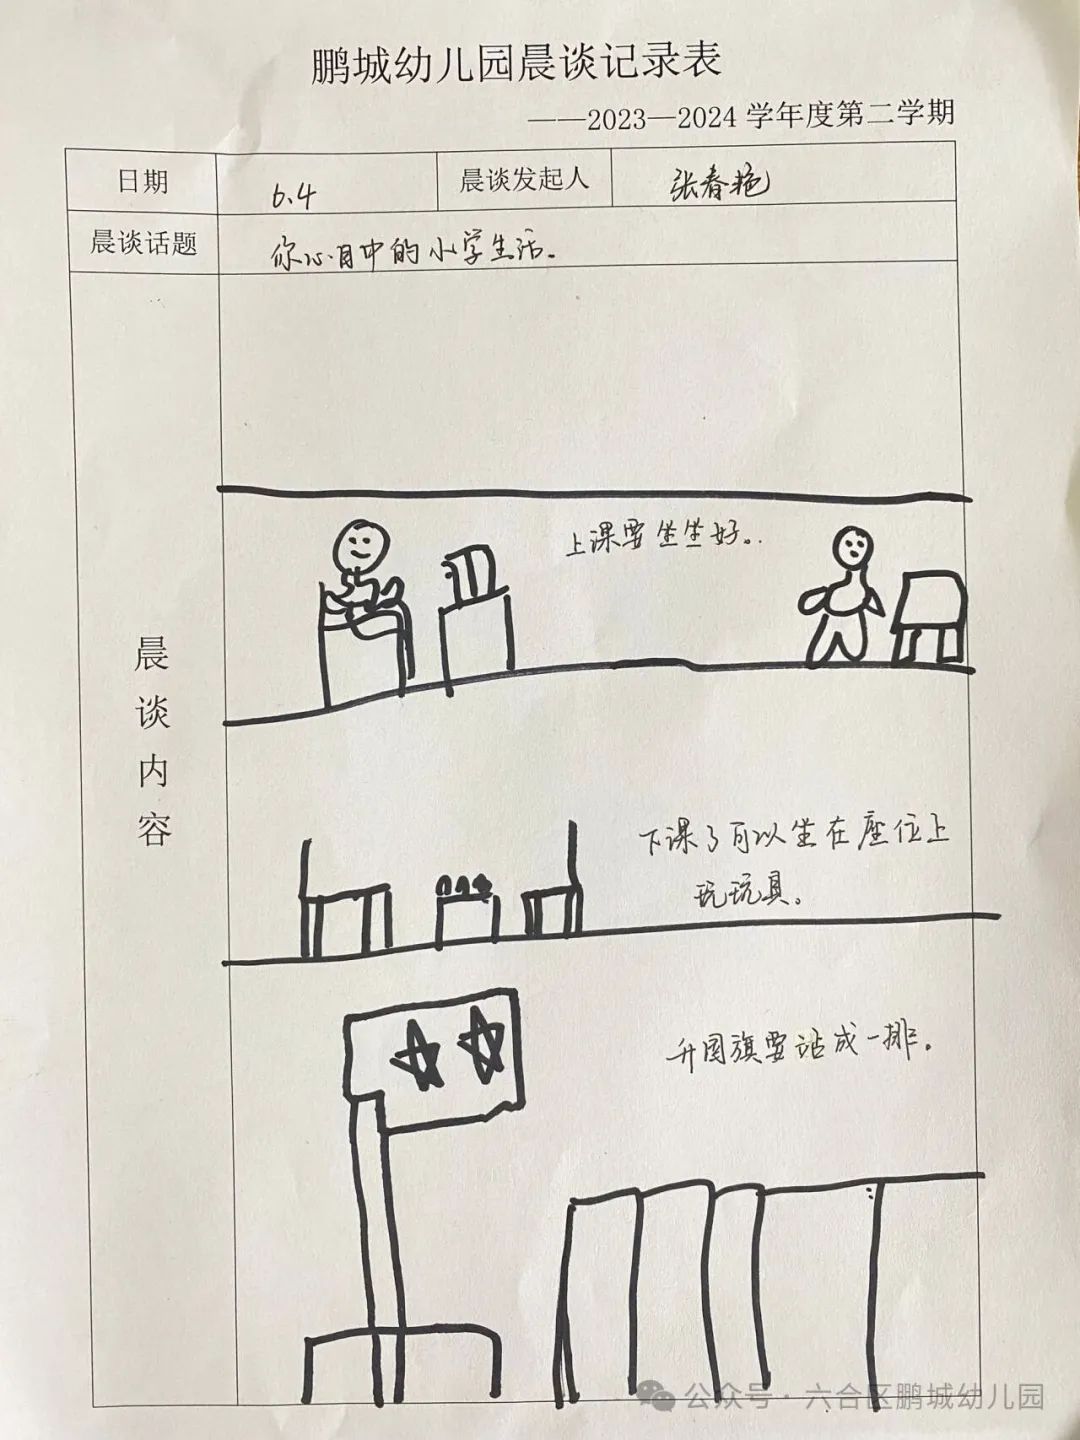 鹏城幼儿园晨谈记录表
——2023—2024 学年度第二学期
日期 6.4 晨谈发起人 张春艳
晨谈话题 你心目中的小学生活。
晨谈内容
上课要坐坐好。
下课了可以坐在座位上
玩玩具。
升国旗要站成一排。
公众号·六合区鹏城幼儿园